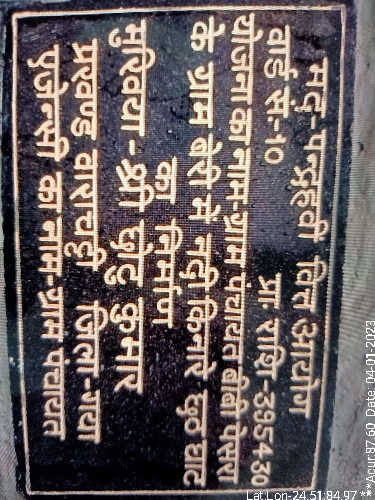 मद्-पन्द्रहवी वित्त आयोग
वार्ड सं.-10 प्रा राशि-395430
योजना का नाम-ग्राम पंचायत बीबी पेसरा
के ग्राम बेरी मे नदी किनारे छठ घाट
का निर्माण
मुखिया -श्री छोटु कुमार
प्रखण्ड बाराचट्टी जिला-गया
एजेन्सी का नाम-ग्राम पंचायत
Lat Lon-24 51:84 97 ***Acur:87.60 Date: 04-01-2023